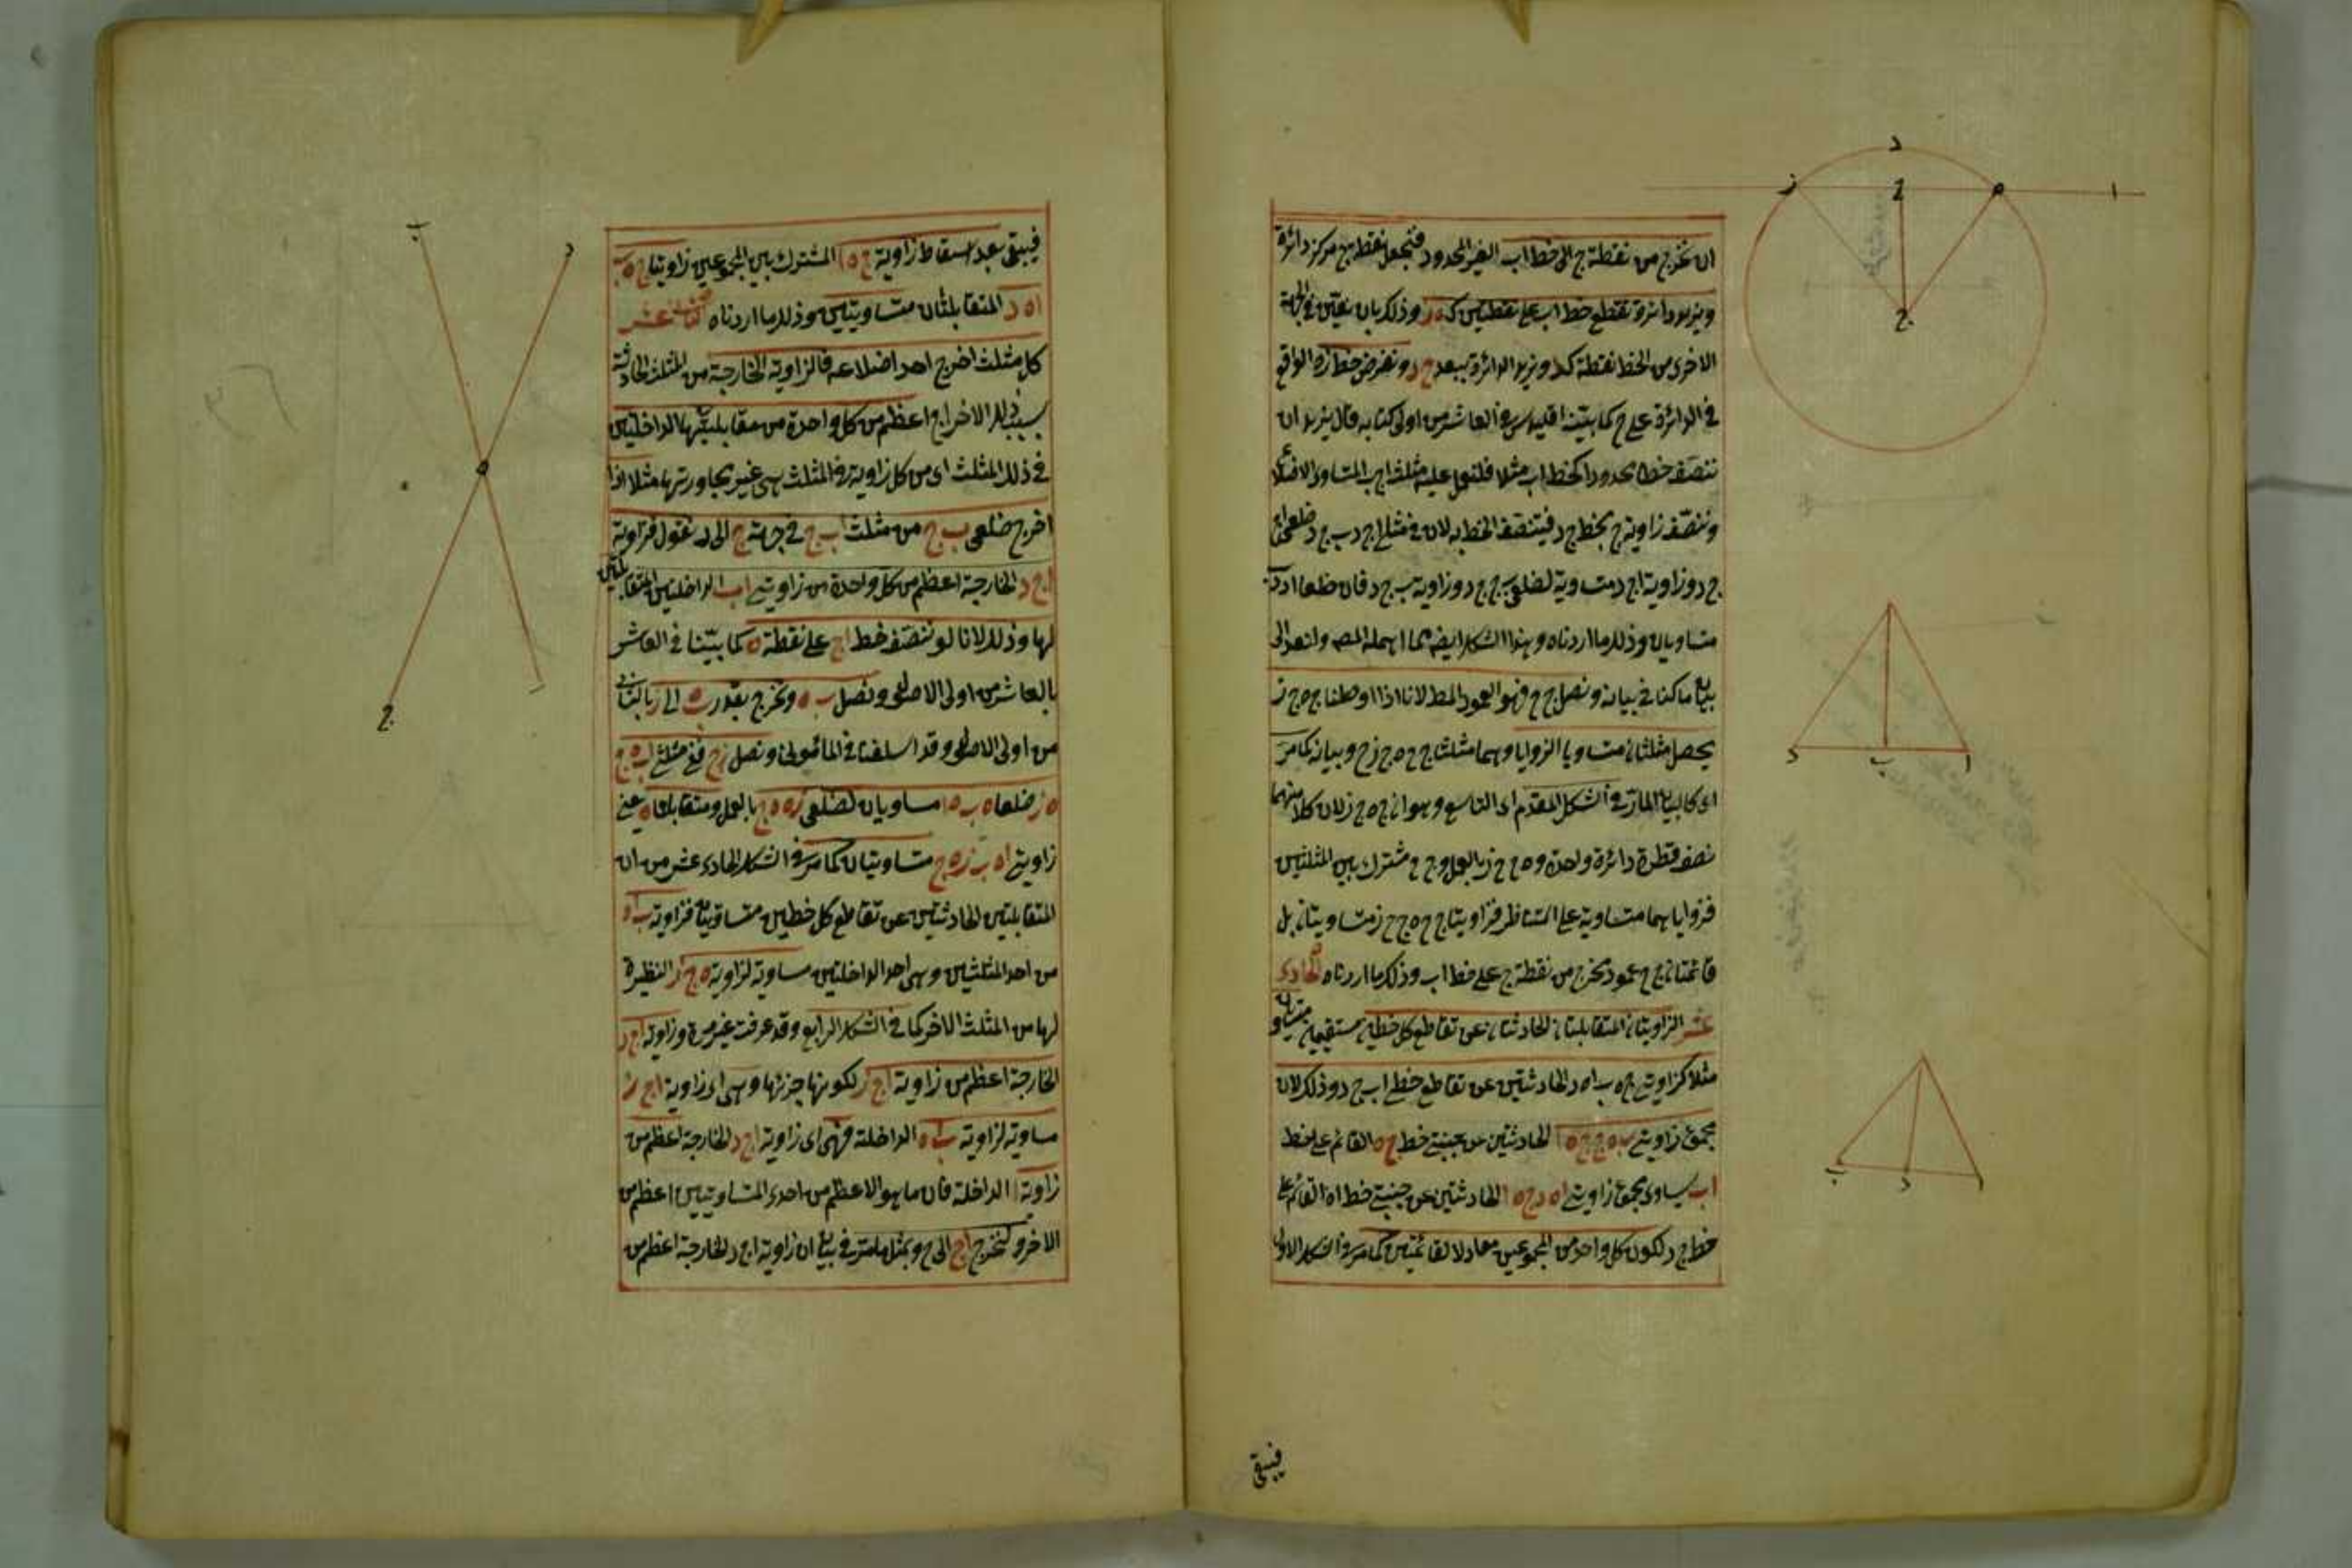 ان نخرج من نقطة ج الى خط اب الغير المحدود فنجعل نقطة ج مركز دائرة
ونزيد دائرة تقطع خط اب على نقطتين كـ ه ز وذلك بان نعين في الجهة
الاخرى من الخط نقطة كد ونزيد الدائرة ببعد ج د ونفرض خط زه الواقع
في الدائرة على ح كما بينه اقليدس في العاشر من اولى كتابه قال نريد ان
ننصف خطا محدودا كخط اب مثلا فلنعمل عليه مثلث اج ب المتساوي الاضلاع
وننصف زاوية ج بخط ج د فينتصف الخط به لان في مثلثي اج د ب ج د ضلعي اج
ج د وزاوية اج د متساوية لضلعي ب ج ج د وزاوية ب ج د فان ضلعا اد دب
متساويان وذلك ما اردناه وهذا الشكل ايضا مما اهمله المصـ ولنعد الى
بيان ما كنا في بيانه ونصل ج ح فهو العمود المط لانا اذا اوصلنا ج ه ج ز
يحصل مثلثان متساويا الزوايا وهما مثلثا ج ح ه ج ز ح وبيانه كما مر
اى كالبيان المار في الشكل المقدم اى التاسع وهو ان ج ه ج ز لان كلا منهما
نصف قطر دائرة واحدة و ه ح ح ز بالعمل و ج ح مشترك بين المثلثين
فزواياهما متساوية على التناظر فزاويتا ج ح ه ج ح ز متساويتان بل
قائمتان ج ح عمود مخرج من نقطة ج على خط اب وذلك ما اردناه الحادى
عشر الزاويتان المتقابلتان الحادثتان عن تقاطع كل خطين مستقيمين متساو
مثلا كزاويتي ج ه ب اه د الحادثتين عن تقاطع خطي اب ج د وذلك لان
مجموع زاويتي ب ه ج ج ه ا الحادثتين عن جنبتي خط ج ه القائم على خط
اب يساوى مجموع زاويتي اه د ج ه ا الحادثتين عن جنبتي خط اه القائم على
خط ج د لكون كل واحد من المجموعين معادلا لقائمتين كما مر في الشكل الاول
فيبقى
فيبقى بعد اسقاط زاوية ج ه ا المشترك بين المجموعين زاويتا ج ه ب
اه د المتقابلتان متساويتين وذلك ما اردناه الثانى عشر
كل مثلث اخرج احد اضلاعه فالزاوية الخارجة من المثلث الحادثة
بسبب ذلك الاخراج اعظم من كل واحدة من مقابلتيها الداخلتين
في ذلك المثلث اى من كل زاوية في المثلث هى غير مجاورتها مثلا اذا
اخرج ضلعي ب ج من مثلث اب ج في جهة ج الى د نقول فزاوية
اج د الخارجة اعظم من كل واحدة من زاويتي اب الداخلتين المتقابلتين
لها وذلك لانا لو ننصف خط اج على نقطة ه كما بينا في العاشر
بالعاشر من اولى الاصول ونصل ب ه ونخرج بقدر ب ه الى ز بالثانى
من اولى الاصول وقد اسلفنا في المأمونى ونصل زج ففى مثلثي اب ه ج
ه ز ضلعا ه ب ه ا مساويان لضلعي زه ه ج بالعمل ومتقابلتا ه يعني
زاويتي اه ب زه ج متساويتان كما مر في الشكل الحادى عشر من ان
المتقابلتين الحادثتين عن تقاطع كل خطين متساويتان فزاوية ب ا ه
من احد المثلثين وهى احد الداخلتين مساوية لزاوية ه ج ز النظيرة
لها من المثلث الاخر كما في الشكل الرابع وقد عرفت غير مرة وزاوية اج د
الخارجة اعظم من زاوية اج ز لكونها جزئها وهى اى زاوية اج ز
مساوية لزاوية ب ا ه الداخلة فهى اى زاوية اج د الخارجة اعظم من
زاوية ا الداخلة فان ما هو الاعظم من احدى المتساويتين اعظم من
الاخر ولنخرج اج الى ح وبمثل ما مر في بيان ان زاوية اج د الخارجة اعظم من